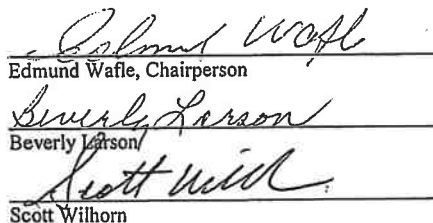 Edmund Wafle
Edmund Wafle, Chairperson
Beverly Larson
Beverly Larson
Scott Wilh
Scott Wilhorn